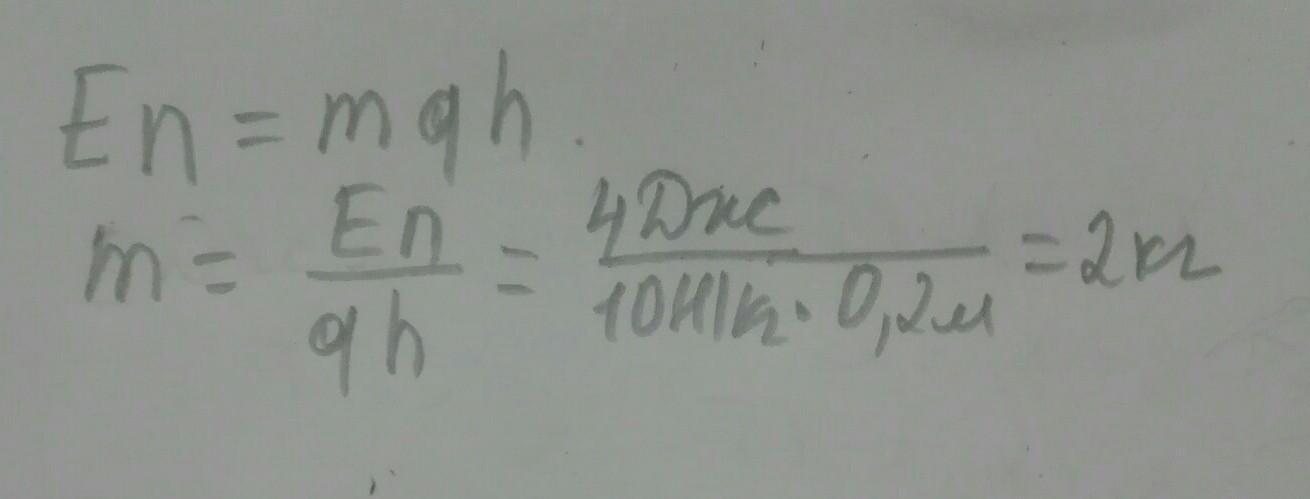 Eп = mgh.
m = Eп/gh = 4Дж/10Н/кг · 0,2м = 2кг